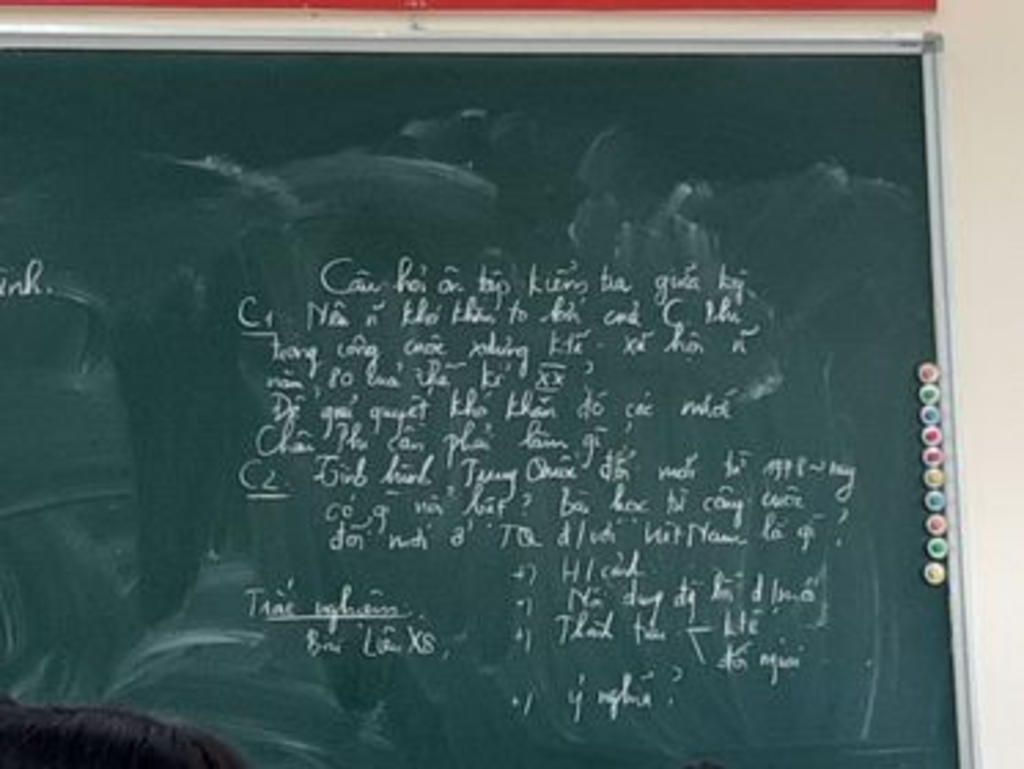 ình.
Câu hỏi ôn tập kiểm tra giữa kỳ
C1 Nêu n~ khó khăn to lớn của C Phi
trong công cuộc xdựng Ktế - xã hội n~
năm 80 của thế kỉ XX?
Để giải quyết khó khăn đó các nước
Châu Phi cần phải làm gì?
C2. Tình hình Trung Quốc đổi mới từ 1978 ~ nay
có gì nổi bật? Bài học từ công cuộc
đổi mới ở TQ đ/với Việt Nam là gì?
+) H/cảnh
+) Nội dung đg lối đ/mới
Trắc nghiệm
+) Thành tựu Ktế
Bài Liên Xô,
đối ngoại
+) ý nghĩa?